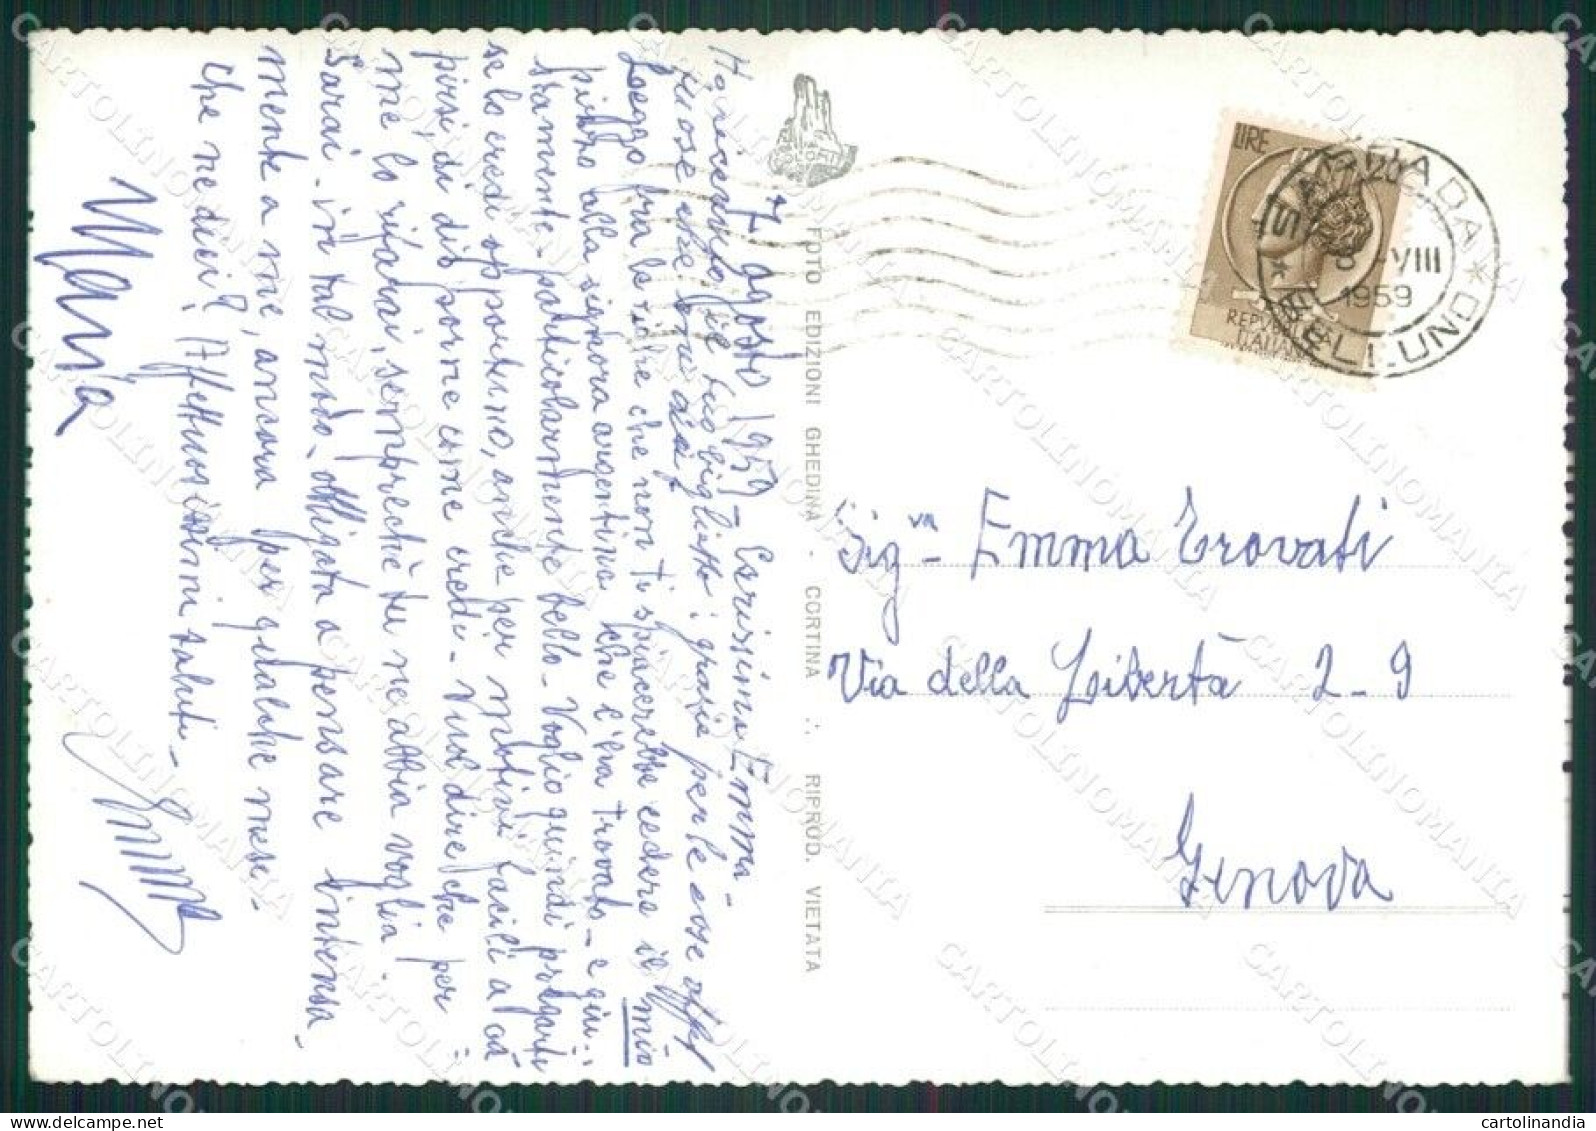 7 agosto 1959 Carissima Emma -
Ho ricevuto il tuo biglietto: grazie per le cose affet
tuose che mi dici.
Leggo fra le righe che non ti spiacerebbe cedere il mio
pizzo alla signora argentina che l'ha trovato - e giu-
stamente - particolarmente bello - Voglio quindi pregarti
se lo credi opportuno, anche per motivi facili a ca
pirsi, di disporne come credi - Vuol dire che per
me lo rifarai, semprechè tu ne abbia voglia.
Sarai - in tal modo - obbligata a pensare intensa-
mente a me, ancora per qualche mese -
che ne dici? Affettuosissimi saluti -
Maria
FOTO EDIZIONI GHEDINA - CORTINA ∴ RIPROD. VIETATA
LIRE
REPVBBLICA
ITALIANA
* BELLUNO *
VIII
1959
Sig.ra Emma Trovati
Via della Libertà 2-9
Genova
CARTOLINOMANIA
cartolinandia